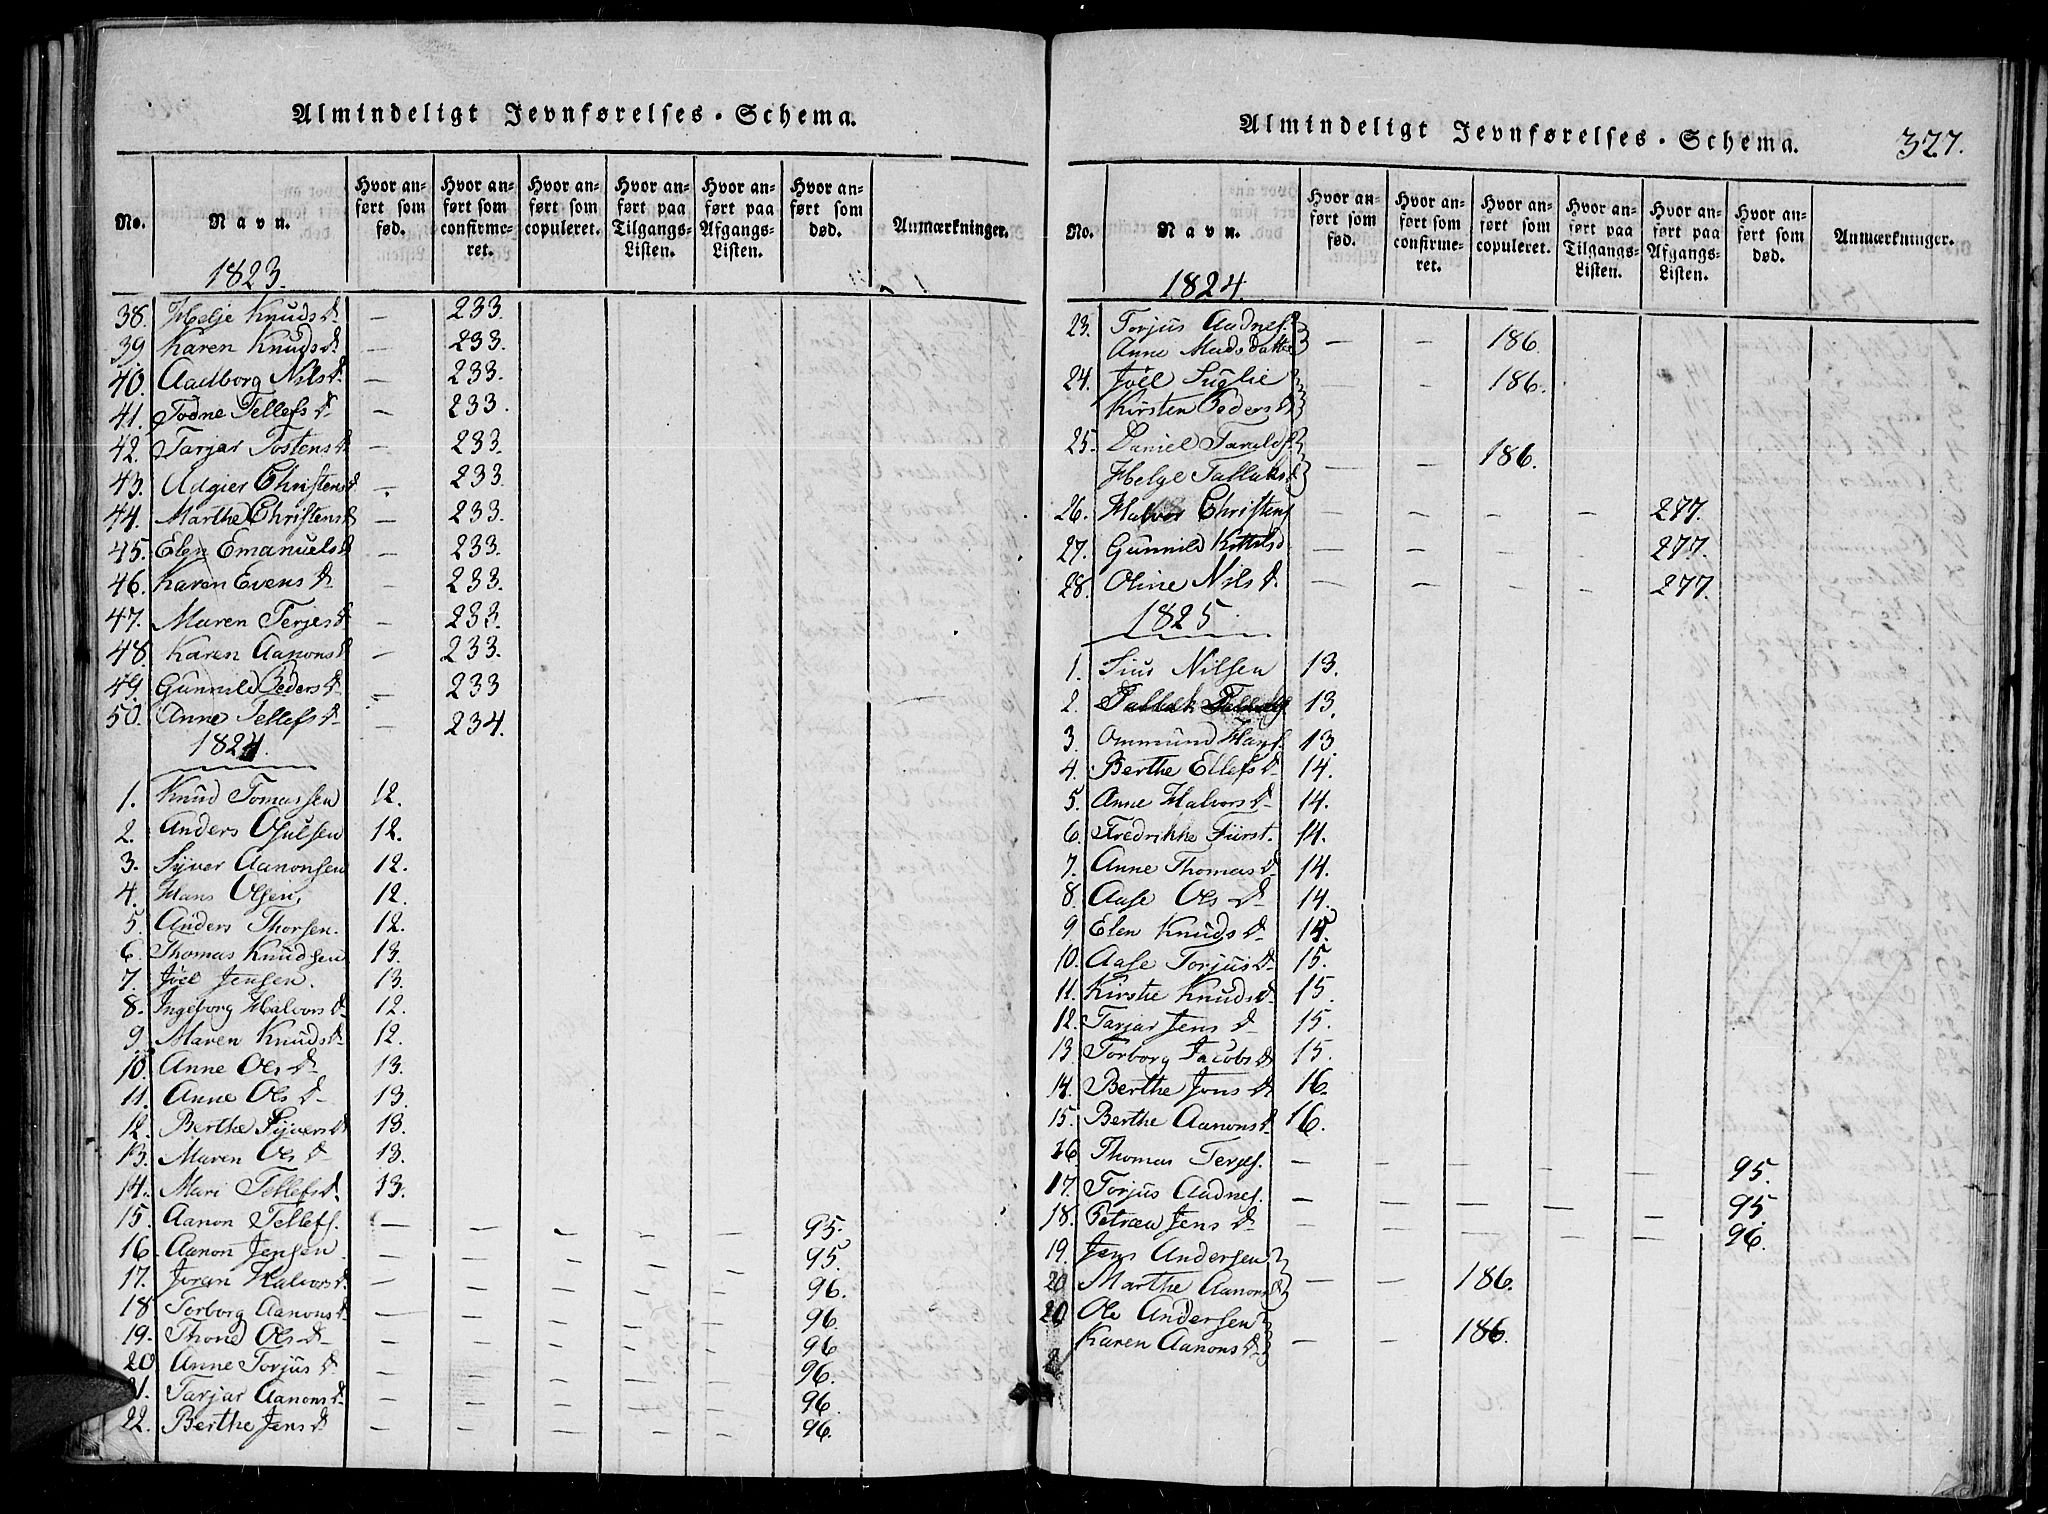 Almindeligt Jevnførelses-Schema.
No. Navn. Hvor anført som fød. Hvor anført som confirmeret. Hvor anført som copuleret. Hvor anført paa Tilgangs-Listen. Hvor anført paa Afgangs-Listen. Hvor anført som død. Anmærkninger.
1823.
38. Helje Knuds d. — 233.
39. Karen Knuds d. — 233.
40. Aadborg Nils d. — 233.
41. Todne Tellefs d. — 233.
42. Tarjar Tostens d. — 233.
43. Adgier Christens d. — 233.
44. Marthe Christens d. — 233.
45. Elen Emanuels d. — 233.
46. Karen Evens d. — 233.
47. Maren Terjes d. — 233.
48. Karen Aanons d. — 233.
49. Gunnild Peders d. — 233
50. Anne Tellefs d. — 234.
1824.
1. Knud Tomassen 12.
2. Anders Gjulsen 12.
3. Syver Aanonsen 12.
4. Hans Olsen, 12.
5. Anders Thorsen. 12.
6. Thomas Knudsen 13.
7. Joel Jensen. 13.
8. Ingeborg Halvors d. 12.
9. Maren Knuds d. 12.
10. Anne Ols d. 13.
11. Anne Ols d. 13.
12. Berthe Syvers d. 13.
13. Maren Ols d. 13.
14. Mari Tellefs d. 13.
15. Aanon Tellefs. — — — — — 95.
16. Aanon Jensen — — — — — 95.
17. Joran Halvors d. — — — — — 96.
18 Torborg Aanons d. — — — — — 96.
19. Thone Ols d. — — — — — 96
20 Anne Torjus d. — — — — — 96.
21. Tarjar Aanons d. — — — — — 96.
22. Berthe Jens d. — — — — — 96.
Almindeligt Jevnførelses-Schema. 327.
No. Navn. Hvor anført som fød. Hvor anført som confirmeret. Hvor anført som copuleret. Hvor anført paa Tilgangs-Listen. Hvor anført paa Afgangs-Listen. Hvor anført som død. Anmærkninger.
1824.
23. Torjus Aadnes.
Anne Madsdatter — — 186.
24. Joel Suglie — — 186.
Kirsten Peders d.
25. Daniel Taralds.
Helge Tallaks d. — — 186.
26. Halvor Christens — — — — 277.
27. Gunnild Kittels d. — — — — 277.
28. Oline Nils d. — — — — 277.
1825.
1. Sius Nilsen 13.
2. Tallak 13.
3. Ommund Hans. 13.
4. Berthe Ellefs d. 14.
5. Anne Halvors d. 14.
6. Fredrikke Fürst. 14.
7. Anne Thomas d. 14.
8. Aase Ols d. 14.
9 Elen Knuds d. 15.
10. Aase Torjus d. 15.
11. Kirstie Knuds d. 15.
12. Tarjar Jens d. 15.
13 Torborg Jacobs d. 15.
14. Berthe Jons d. 16.
15. Berthe Aanons d. 16.
16. Thomas Terjes. — — — — — 95.
17. Torjus Aadnes. — — — — — 95.
18. Petrea Jens d. — — — — — 96.
19. Jens Andersen
20 Marthe Aanons d. — — 186.
20. Ole Andersen
Karen Aanons d. — — 186.